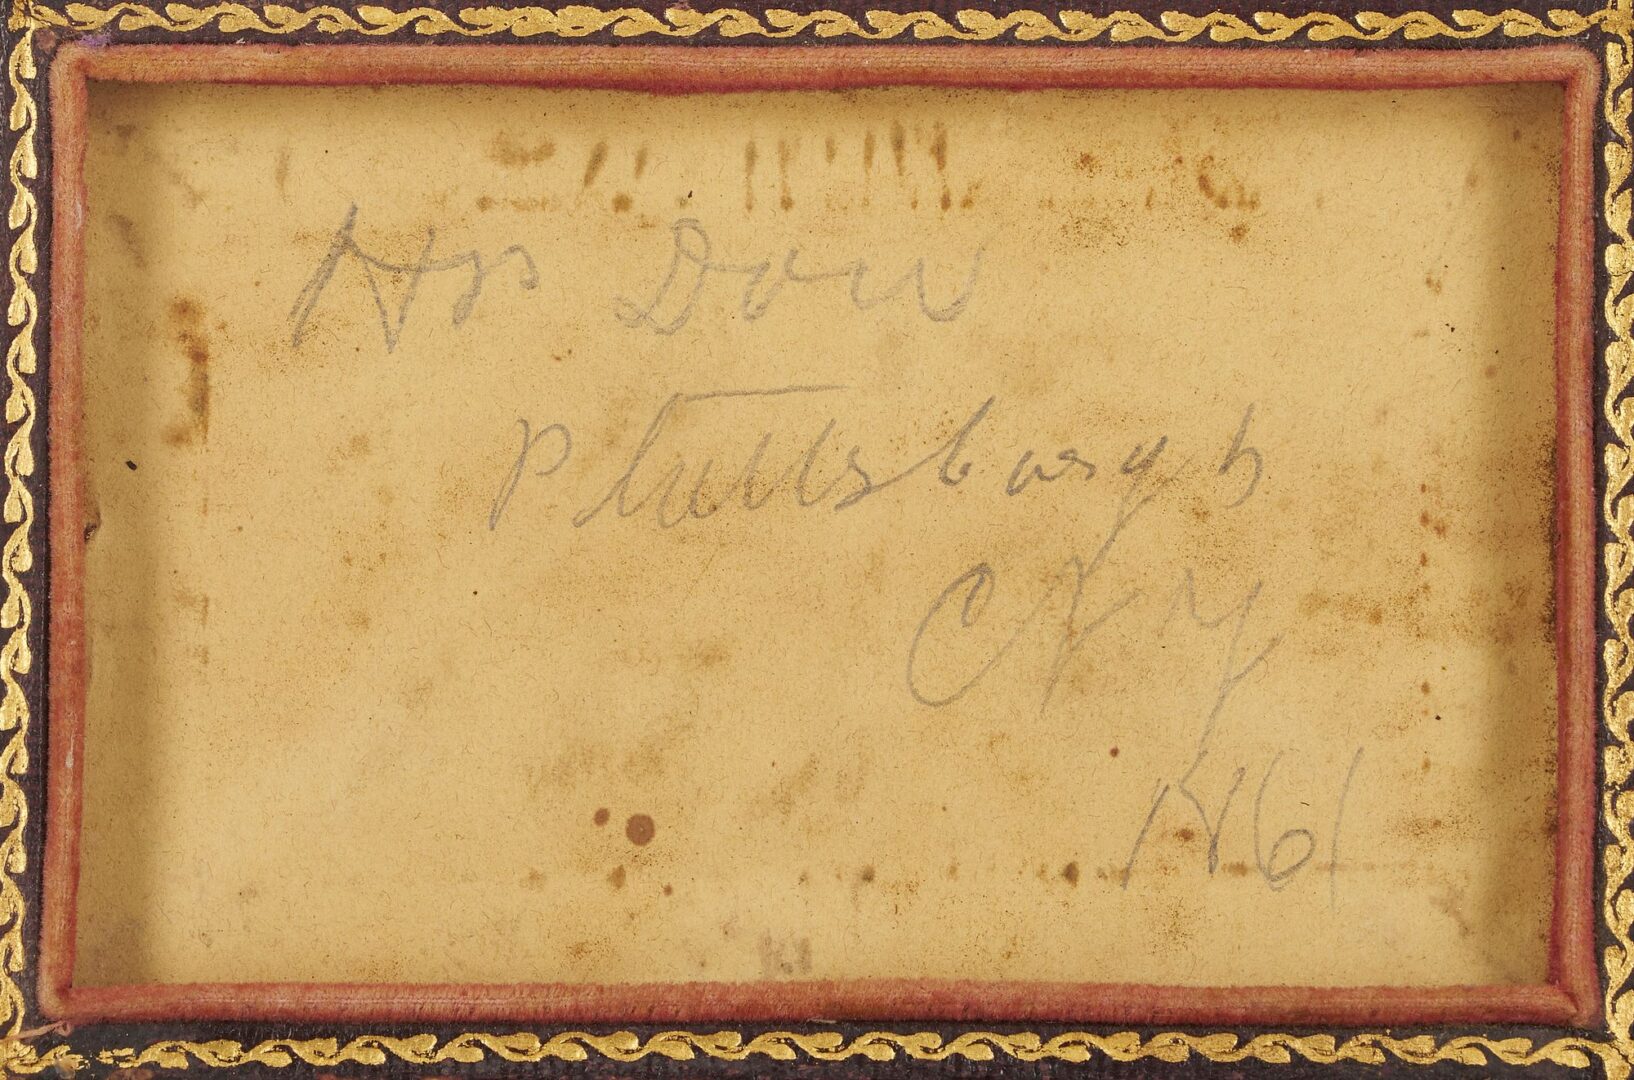 Dow
Plattsburgh
C N Y
1861